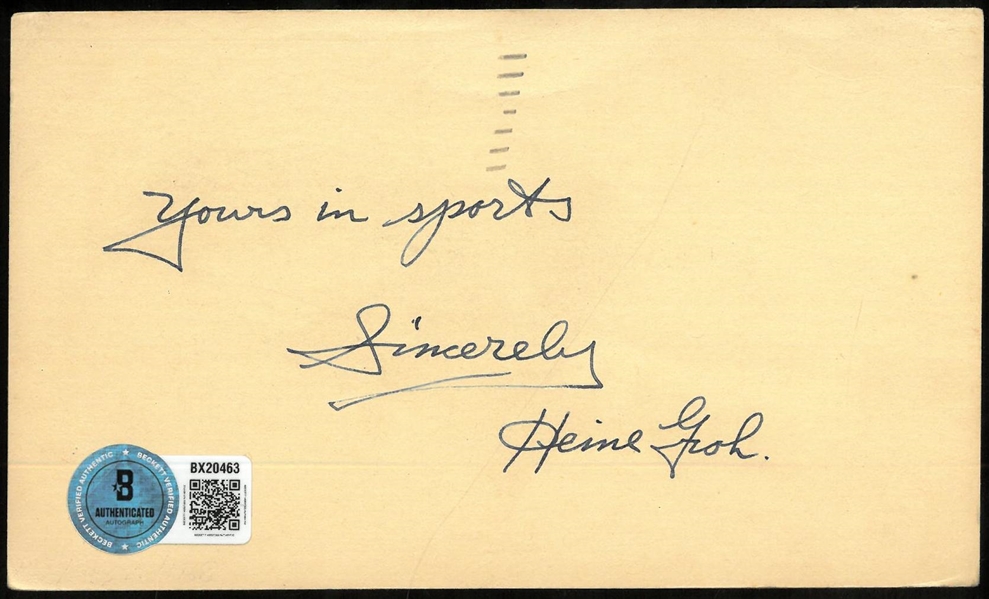 Yours in sports
Sincerely
Heine Groh.
BECKETT VERIFIED AUTHENTIC
BECKETT VERIFIED AUTHENTIC
B
AUTHENTICATED
AUTOGRAPH
BX20463